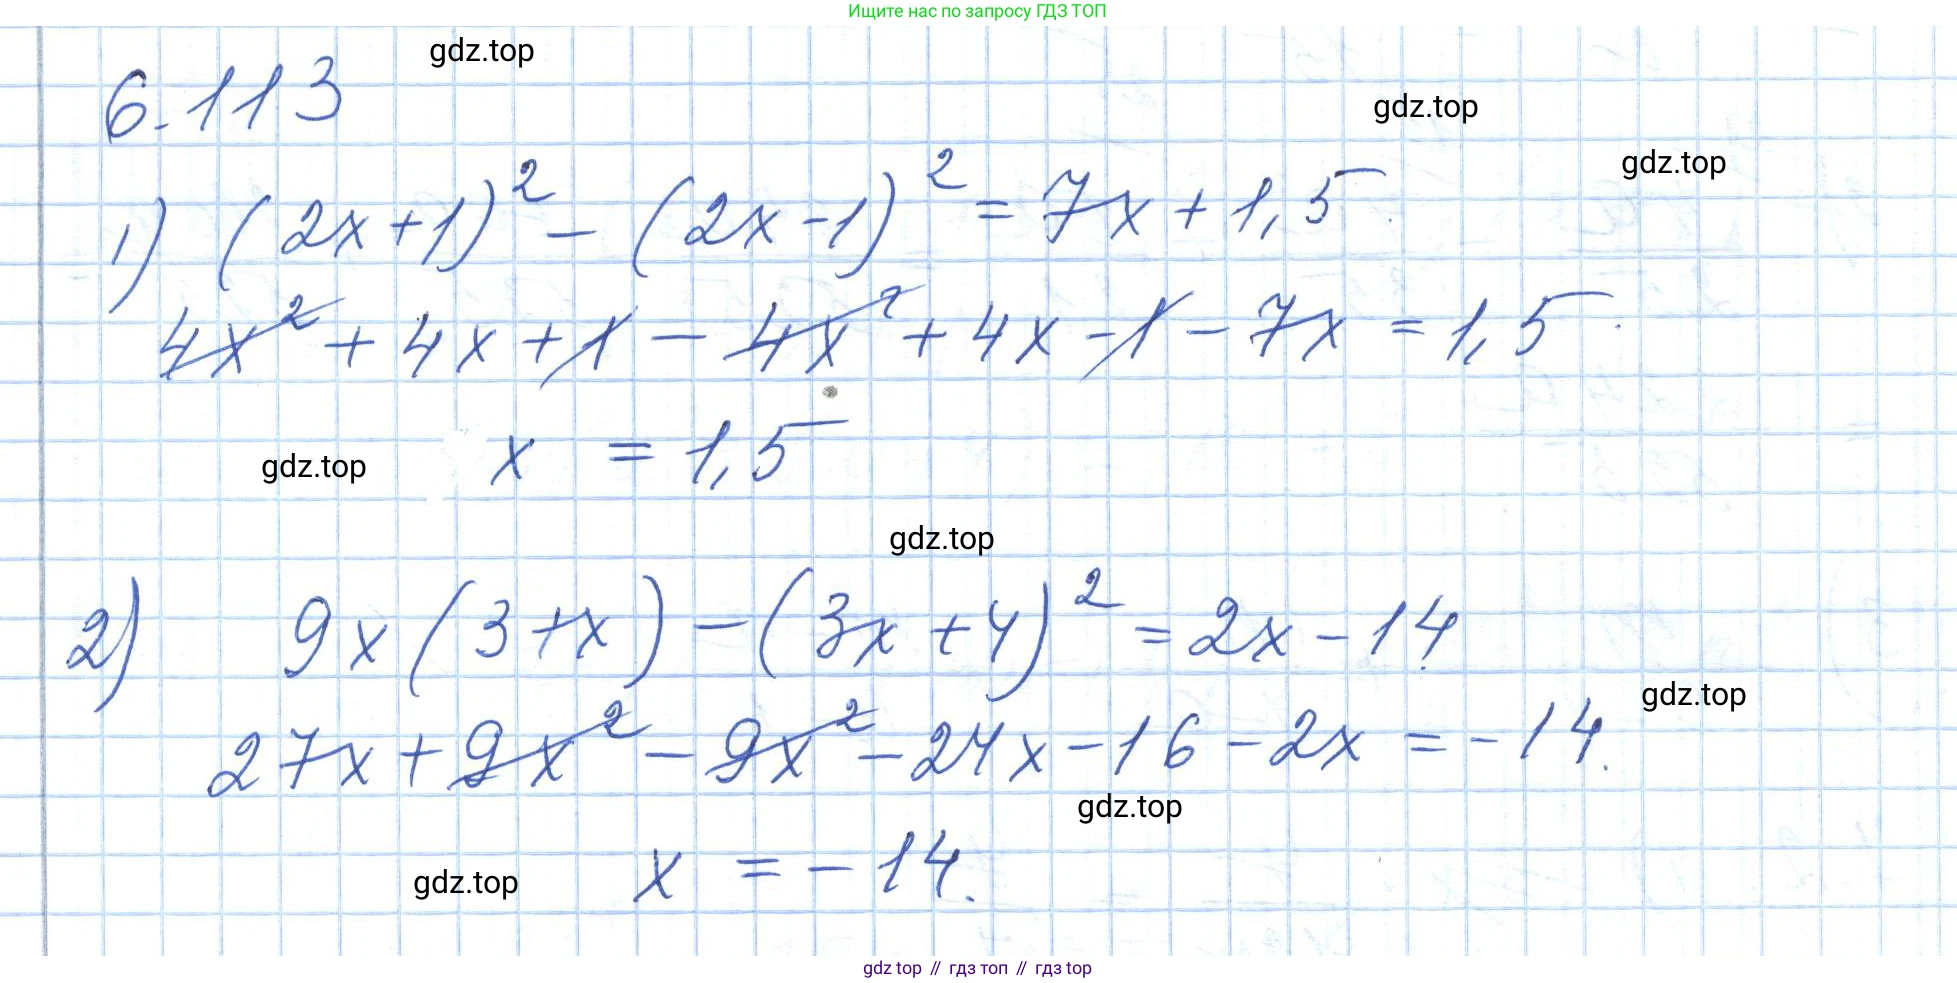 Ищите нас по запросу ГДЗ ТОП
gdz.top
6.113
gdz.top
gdz.top
1) (2x+1)² - (2x-1)² = 7x + 1,5
4x² + 4x + 1 - 4x² + 4x - 1 - 7x = 1,5
gdz.top
x = 1,5
gdz.top
2) 9x(3+x) - (3x+4)² = 2x - 14
gdz.top
27x + 9x² - 9x² - 24x - 16 - 2x = -14.
gdz.top
gdz.top
x = -14.
gdz top // гдз топ // гдз top